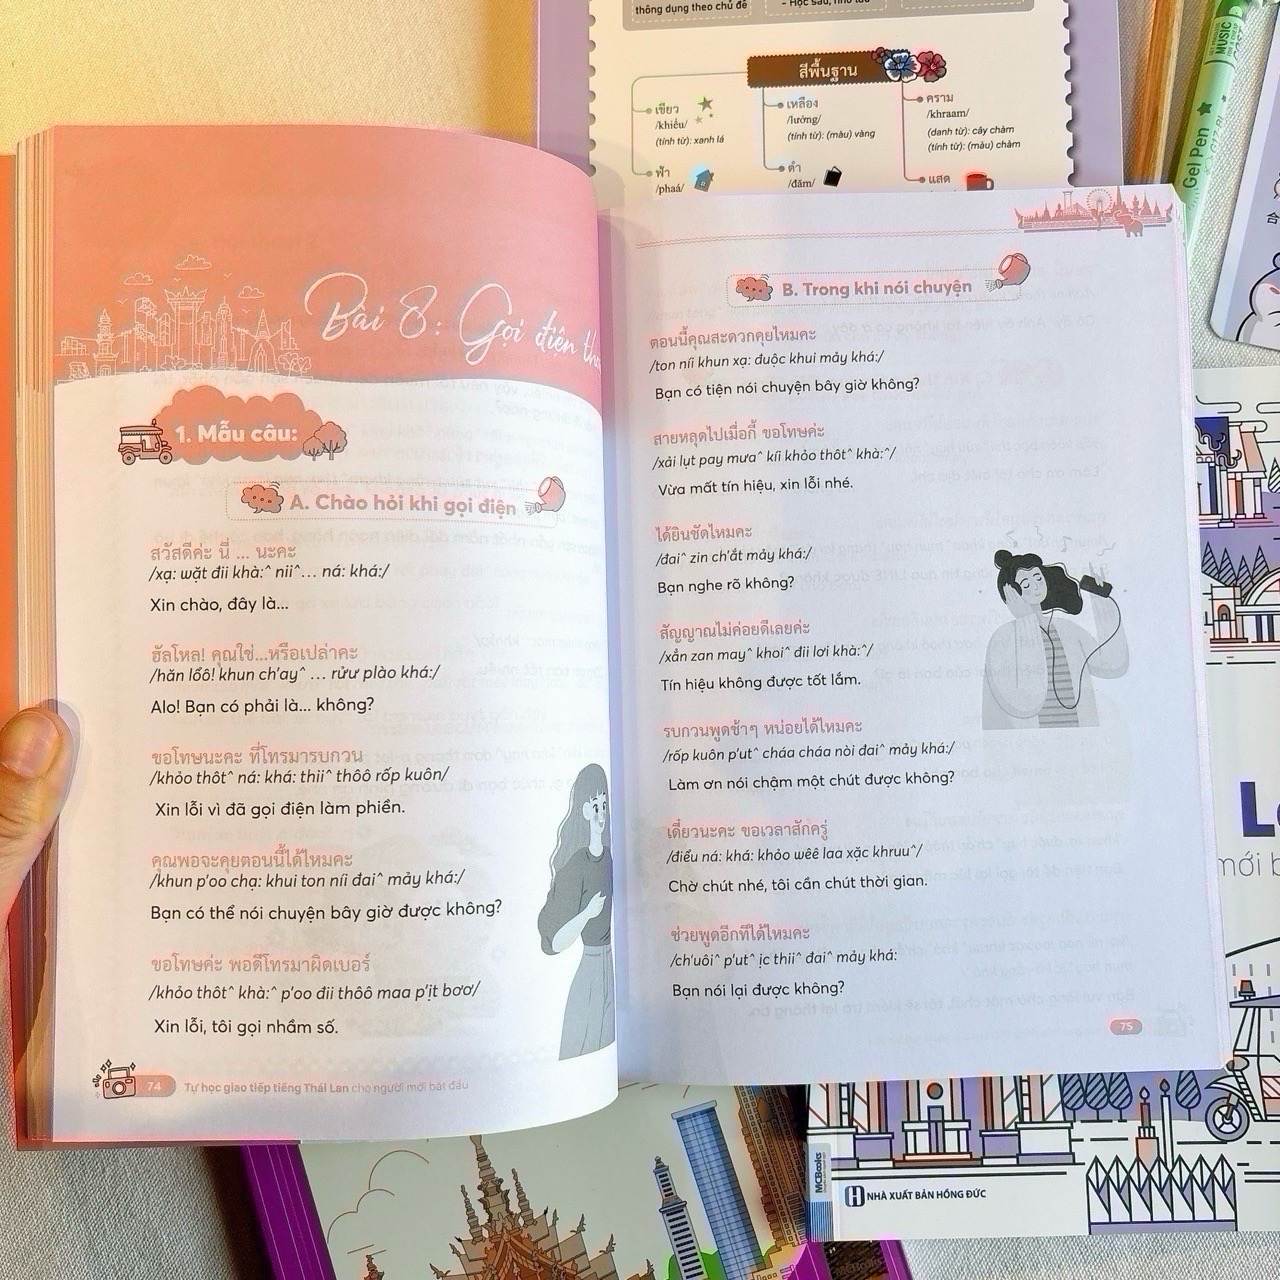 thông dụng theo chủ đề
สีพื้นฐาน
เขียว
/khiểu/
(tính từ): xanh lá
ฟ้า
/phaá/
เหลือง
/lướng/
(tính từ): (màu) vàng
ดำ
/đăm/
คราม
/khraam/
(danh từ): cây chàm
(tính từ): (màu) chàm
แสด
Gel Pen
MUSIC
Bài 8: Gọi điện tho
1. Mẫu câu:
A. Chào hỏi khi gọi điện
สวัสดีค่ะ นี่ ... นะคะ
/xạ: wặt đii khà:^ nii^... ná: khá:/
Xin chào, đây là...
ฮัลโหล! คุณใช่...หรือเปล่าคะ
/hăn lổô! khun ch'ay^ ... rửư plào khá:/
Alo! Bạn có phải là... không?
ขอโทษนะคะ ที่โทรมารบกวน
/khỏo thôt^ ná: khá: thii^ thôô rốp kuôn/
Xin lỗi vì đã gọi điện làm phiền.
คุณพอจะคุยตอนนี้ได้ไหมคะ
/khun p'oo chạ: khui ton níi đai^ mảy khá:/
Bạn có thể nói chuyện bây giờ được không?
ขอโทษค่ะ พอดีโทรมาผิดเบอร์
/khỏo thôt^ khà:^ p'oo đii thôô maa p'ịt bơơ/
Xin lỗi, tôi gọi nhầm số.
74 Tự học giao tiếp tiếng Thái Lan cho người mới bắt đầu
B. Trong khi nói chuyện
ตอนนี้คุณสะดวกคุยไหมคะ
/ton níi khun xạ: đuộc khui mảy khá:/
Bạn có tiện nói chuyện bây giờ không?
สายหลุดไปเมื่อกี้ ขอโทษค่ะ
/xải lụt pay mưa^ kíi khỏo thôt^ khà:^/
Vừa mất tín hiệu, xin lỗi nhé.
ได้ยินชัดไหมคะ
/đai^ zin ch'ắt mảy khá:/
Bạn nghe rõ không?
สัญญาณไม่ค่อยดีเลยค่ะ
/xẳn zan may^ khoi^ đii lơi khà:^/
Tín hiệu không được tốt lắm.
รบกวนพูดช้าๆ หน่อยได้ไหมคะ
/rốp kuôn p'ut^ cháa cháa nòi đai^ mảy khá:/
Làm ơn nói chậm một chút được không?
เดี๋ยวนะคะ ขอเวลาสักครู่
/điểu ná: khá: khỏo wêê laa xặc khruu^/
Chờ chút nhé, tôi cần chút thời gian.
ช่วยพูดอีกทีได้ไหมคะ
/ch'uôi^ p'ut^ ịc thii^ đai^ mảy khá:
Bạn nói lại được không?
75
mới b
MCBooks
NHÀ XUẤT BẢN HỒNG ĐỨC